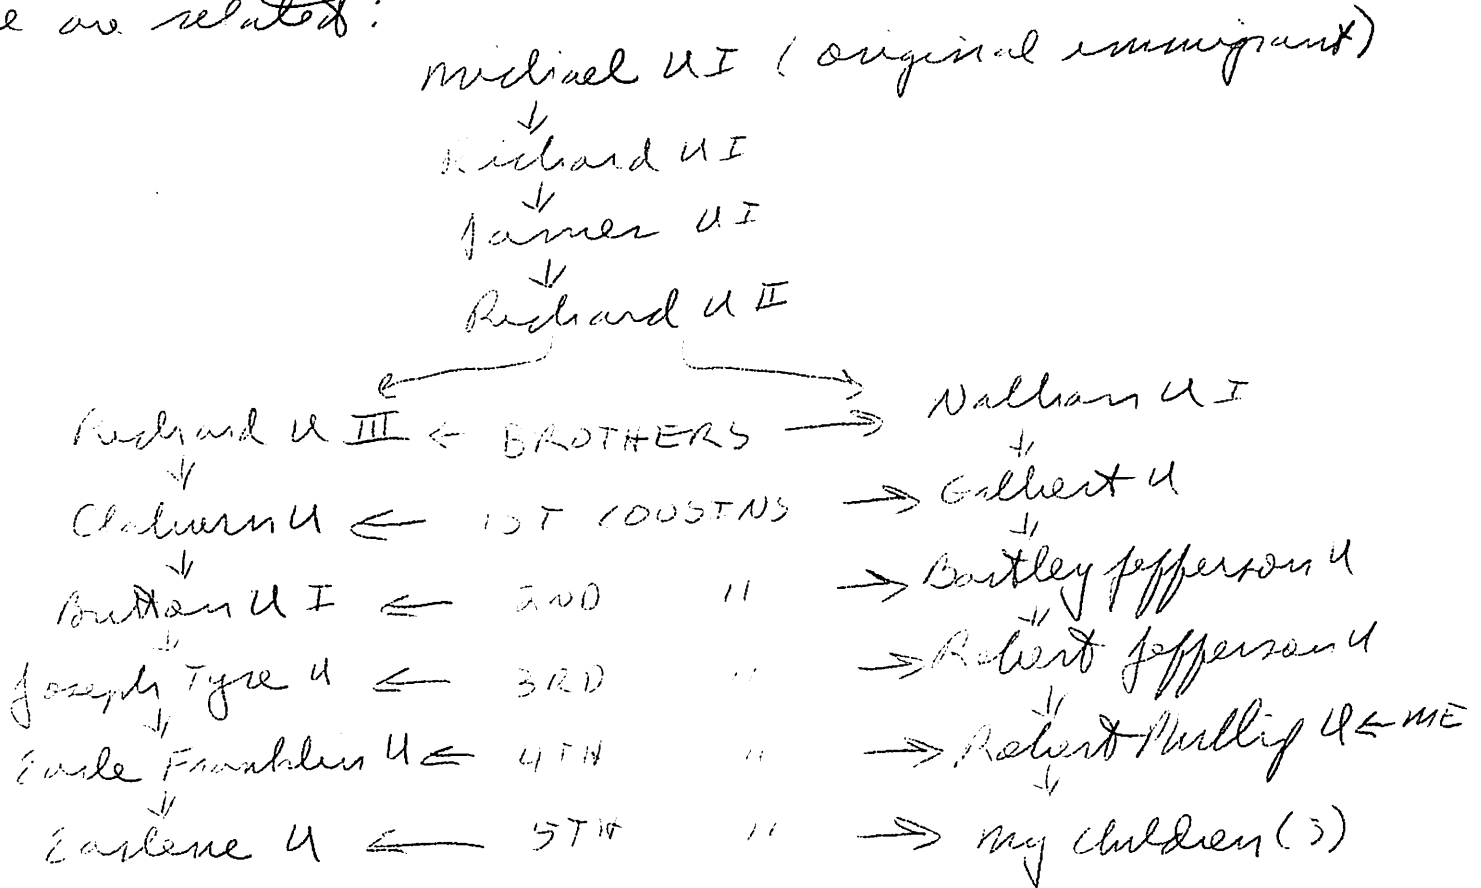 e are related:
Michael U I (original immigrant)
Richard U I
James U I
Richard U II
Richard U III ← BROTHERS → Nathan U I
Claburn U ← 1ST COUSINS → Gilbert U
Britton U I ← 2ND " → Bartley Jefferson U
Joseph Tyre U ← 3RD " → Robert Jefferson U
Earle Franklin U ← 4TH " → Robert Phillip U ← ME
Earlene U ← 5TH " → My children (3)